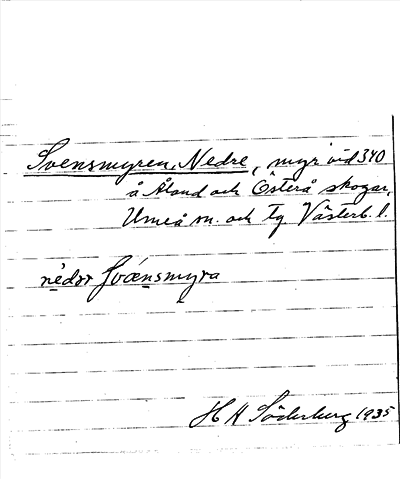 Svensmyren, Nedre, myr vid 340
å Åland och Österå skogar,
Umeå sn. och tg Västerb. l.
nèdɛr Svǽnsmyra
H H Söderberg 1935